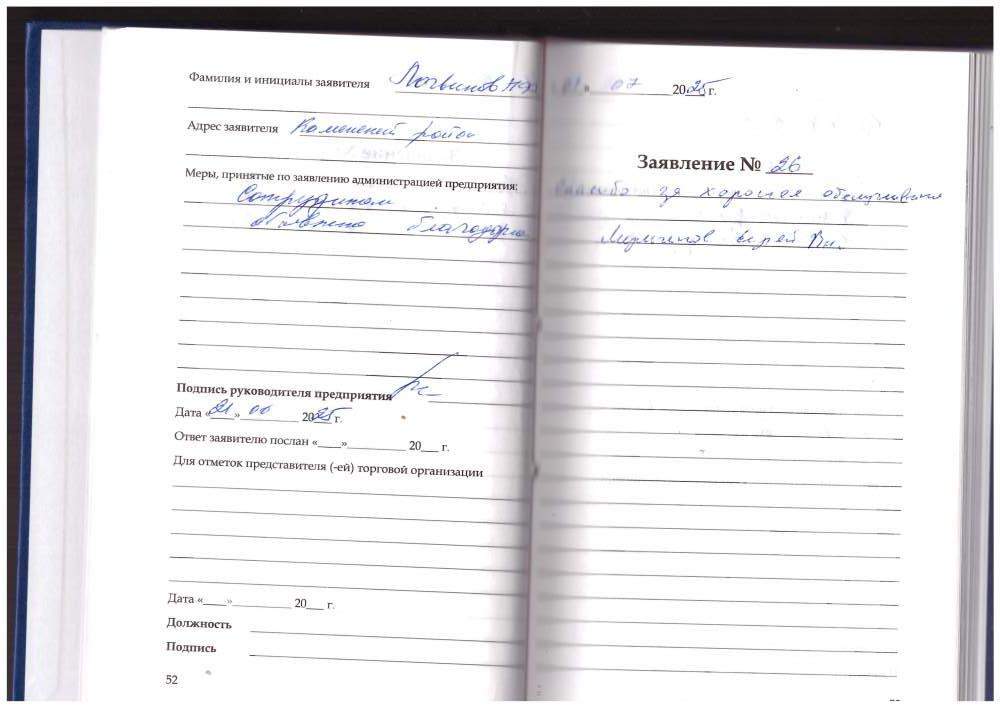 Фамилия и инициалы заявителя Логвинов
Адрес заявителя Каменский район
Меры, принятые по заявлению администрацией предприятия:
Сотрудникам
объявлена благодарно
Подпись руководителя предприятия
Дата «21» 20 25 г.
Ответ заявителю послан «___»__________ 20___ г.
Для отметок представителя (-ей) торговой организации
Дата «____»__________ 20___ г.
Должность
Подпись
52
01» 07 20 25 г.
Заявление № 26
Спасибо за хорошая обслуживания